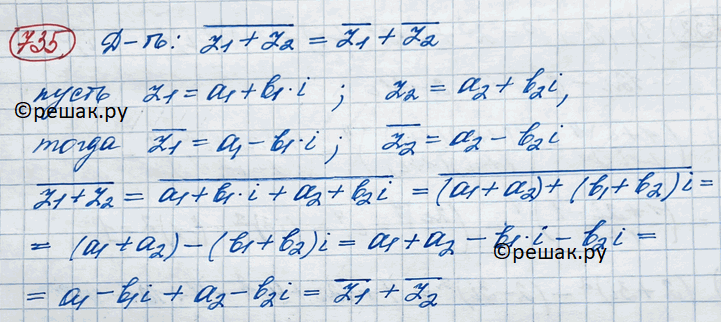 735 Д-ть: \overline{z₁ + z₂} = \overline{z₁} + \overline{z₂}
пусть z₁ = a₁ + b₁·i ; z₂ = a₂ + b₂i,
©решак.ру
тогда \overline{z₁} = a₁ - b₁·i ; \overline{z₂} = a₂ - b₂i
\overline{z₁ + z₂} = \overline{a₁ + b₁·i + a₂ + b₂i} = \overline{(a₁ + a₂) + (b₁ + b₂)i} =
= (a₁ + a₂) - (b₁ + b₂)i = a₁ + a₂ - b₁·i - b₂i =
©решак.ру
= a₁ - b₁i + a₂ - b₂i = \overline{z₁} + \overline{z₂}